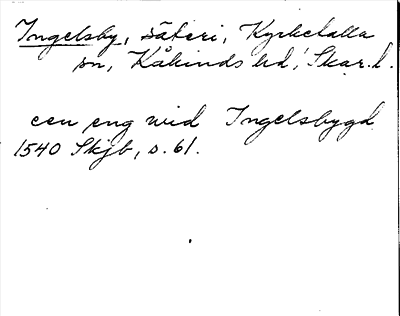 Ingelsby, säteri, Kyrketalla
sn, Kåkinds hd, Skar. l.
een eng wid Ingelsbygd
1540 Skjb, s. 61.